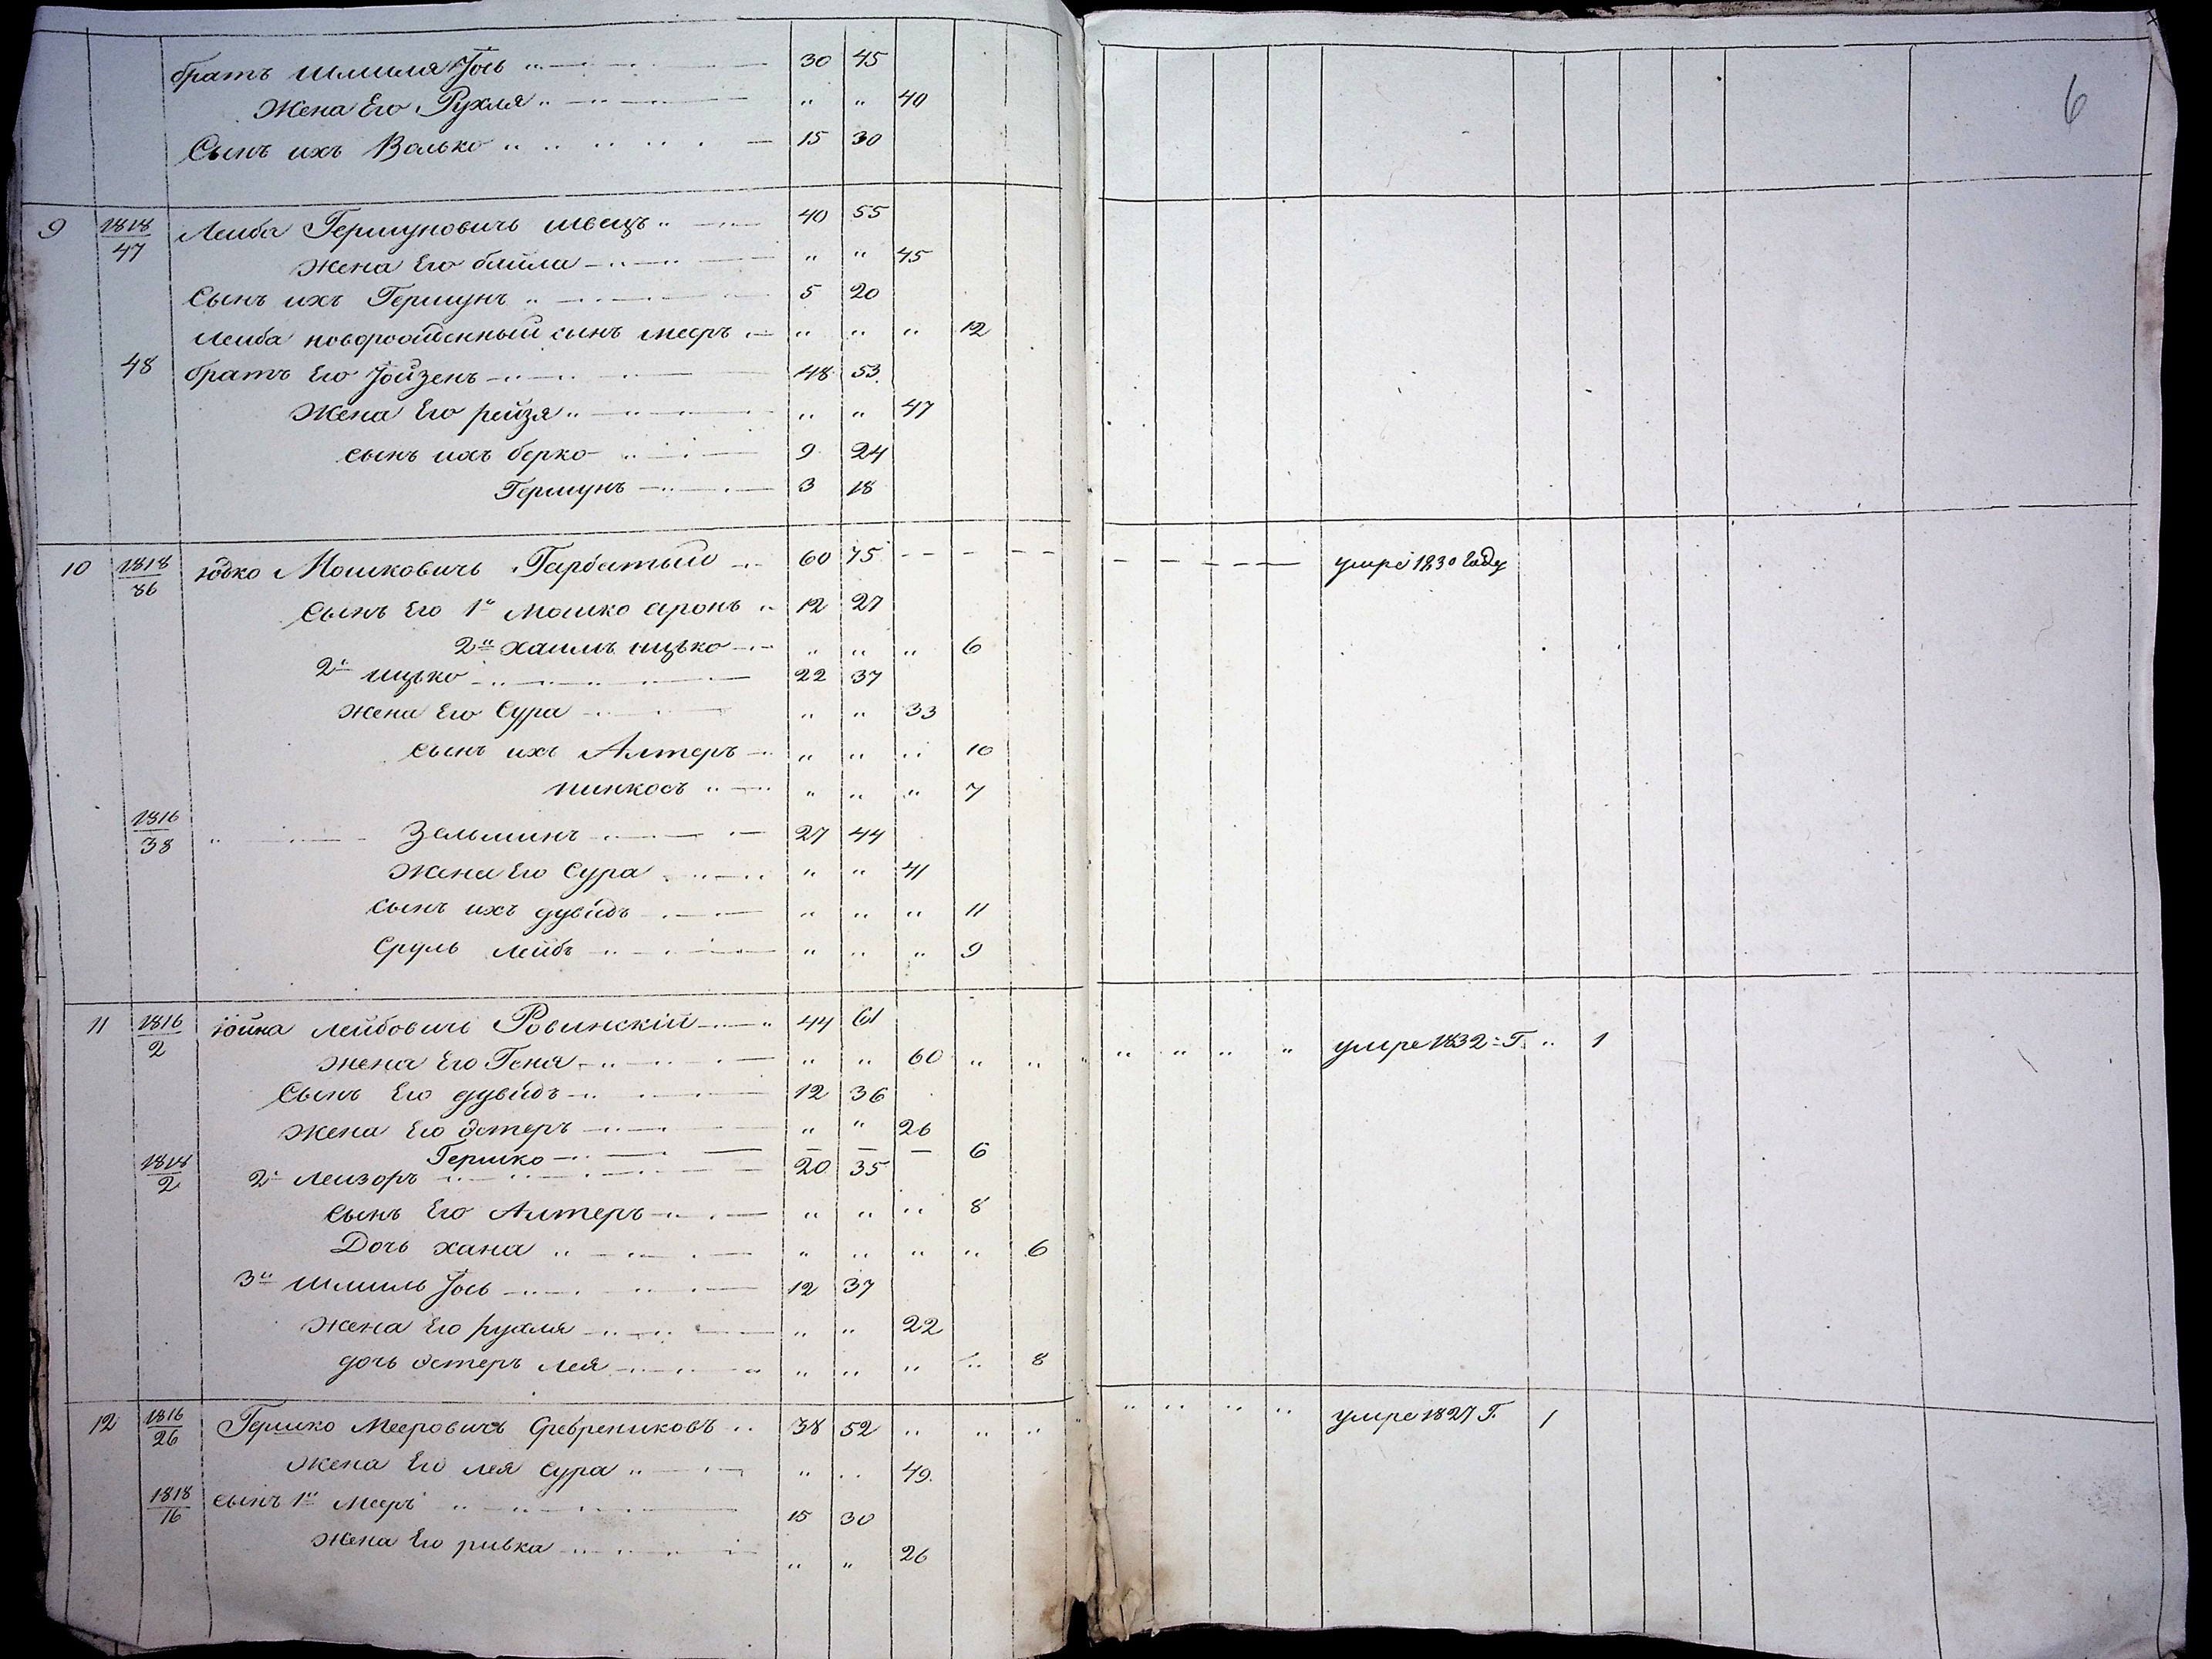 братъ Шмиля Іось 30 45
Жена Его Рухля " " 40
Сынъ ихъ Волько 15 30
6
9 1818/47 Леиба Гершуновичъ швецъ 40 55
жена Его баила " " 45
Сынъ ихъ Гершунъ 5 20
Леиба новорожденный сынъ мееръ " " " 12
48 братъ Его Іойзенъ 48 53
Жена Его рейзя " " 47
сынъ ихъ берко 9 24
Гершунъ 3 18
10 1818/86 юдко Мошковичь Гарбатый 60 75 - - - - - - - - - умре 1830 Году
Сынъ Его 1й мошко аронъ 12 27
2й хаимъ ицько " " " 6
2й ицько 22 37
жена Его Сура " " 33
сынъ ихъ Алтеръ " " " 10
пинкосъ " " " 7
1816/38 " Зельминъ 27 44
жена Его Сура " " 41
сынъ ихъ дувидъ " " " 11
Сруль лейбъ " " " 9
11 1816/2 юйна лейбовичъ Ровинскій 44 61
жена Его Геня " " 60 " " " " " " " умре 1832 Г. " 1
Сынъ Его дувидъ 12 36
жена Его эстеръ " " 26
Гершко — — — 6
1818/2 2й Леизоръ 20 35
сынъ Его Алтеръ " " " 8
Дочь хана " " " " 6
3й Шмиль Іось 12 37
жена Его рухля " " 22
дочь эстеръ лея " " " " 8
12 1816/26 Гершко Мееровичъ 38 52 " " " " " " " " умре 1827 Г. 1
жена Его лея сура " " 49
1818/16 сынъ 1й Мееръ 15 30
жена Его ривка " " 26